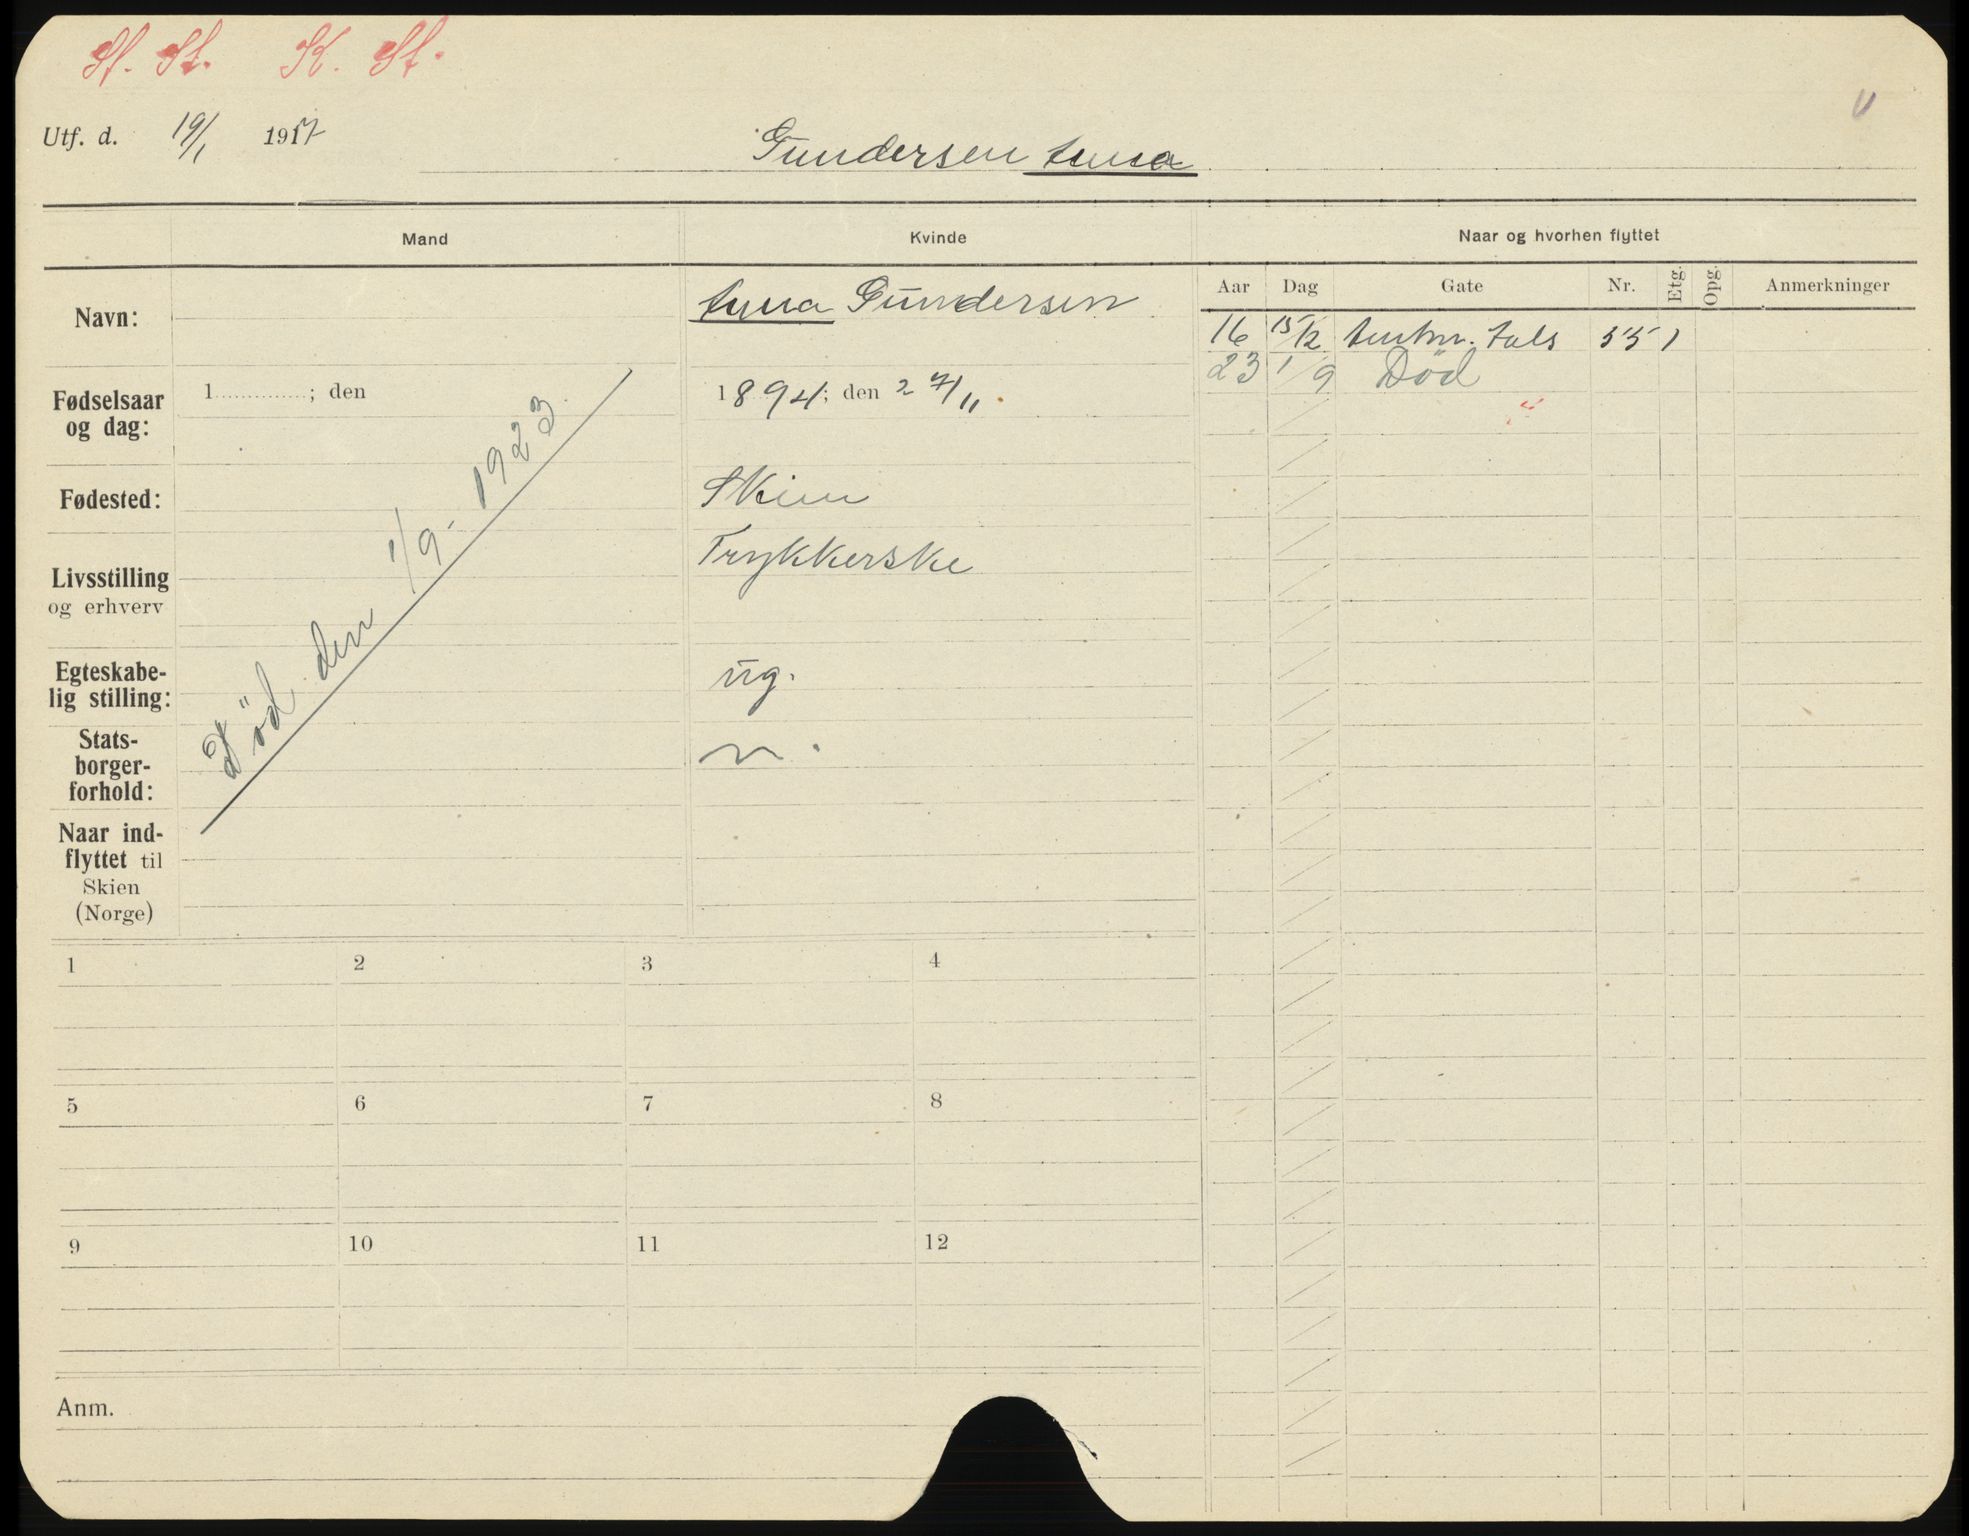 St. St. K. St.
Utf. d. 19/1 1917
Gundersen Anna
Mand Kvinde Naar og hvorhen flyttet
Aar Dag Gate Nr. Etg. Opg. Anmerkninger
Navn: Anna Gundersen
16 15/12 Amtm. Aals 55 1
23 1/9 Død
Fødselsaar og dag: 1 ; den 1894; den 27/11.
Fødested: Skien
Livsstilling og erhverv Trykkerske
Egteskabe-
lig stilling: ug.
Stats-
borger-
forhold: n.
Død den 1/9 - 1923.
Naar ind-
flyttet til
Skien
(Norge)
1 2 3 4
5 6 7 8
9 10 11 12
Anm.